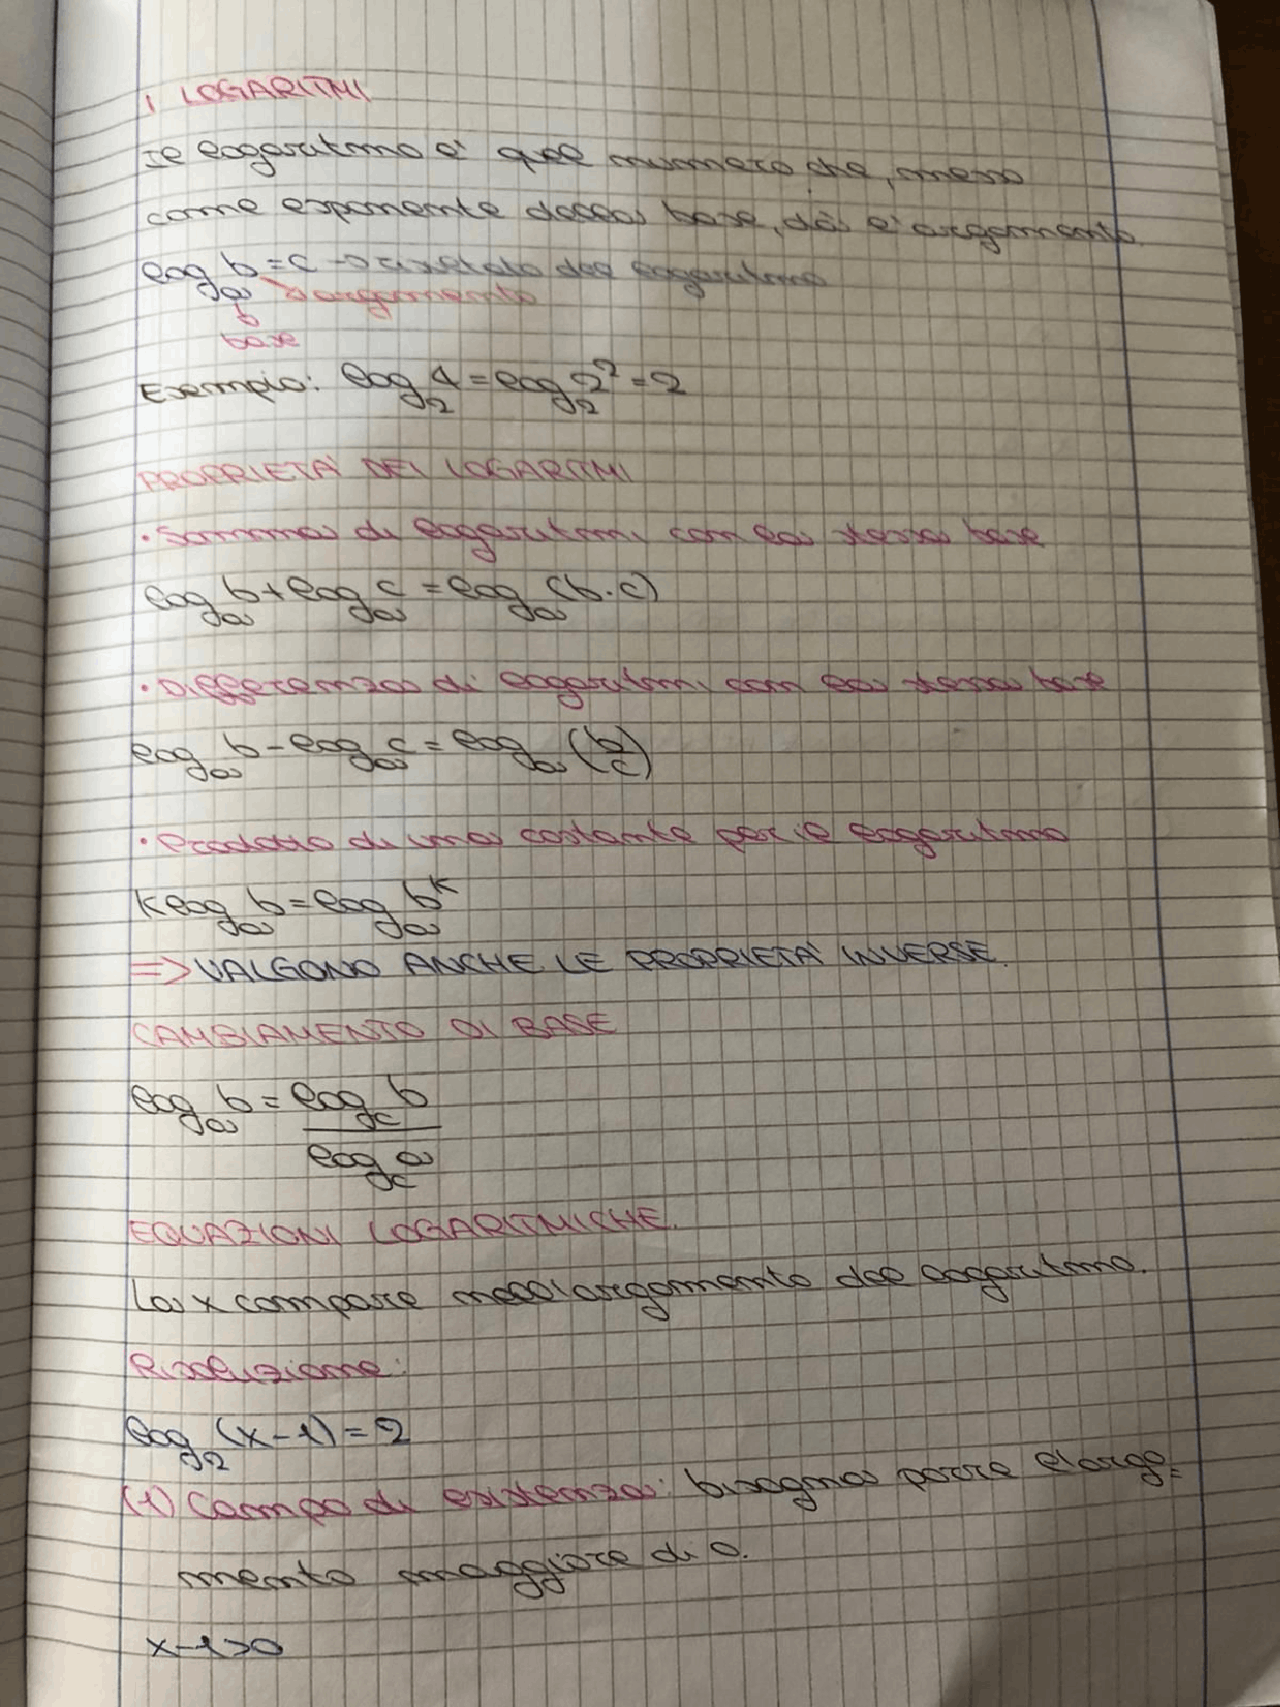 I LOGARITMI
Il logaritmo è quel numero che, messo
come esponente della base, dà l'argomento.
log_a b = c → risultato del logaritmo
argomento
base
Esempio: log_2 4 = log_2 2² = 2
PROPRIETÀ DEI LOGARITMI
• Somma di logaritmi con la stessa base
log_a b + log_a c = log_a (b·c)
• Differenza di logaritmi con la stessa base
log_a b - log_a c = log_a (b/c)
• Prodotto di una costante per il logaritmo
K log_a b = log_a b^K
=> VALGONO ANCHE LE PROPRIETÀ INVERSE.
CAMBIAMENTO DI BASE
log_a b = log_c b
log_c a
EQUAZIONI LOGARITMICHE.
La x compare nell'argomento del logaritmo.
Risoluzione:
log_2 (x-1) = 2
(1) Campo di esistenza: bisogna porre l'argo=
mento maggiore di 0.
x-1>0